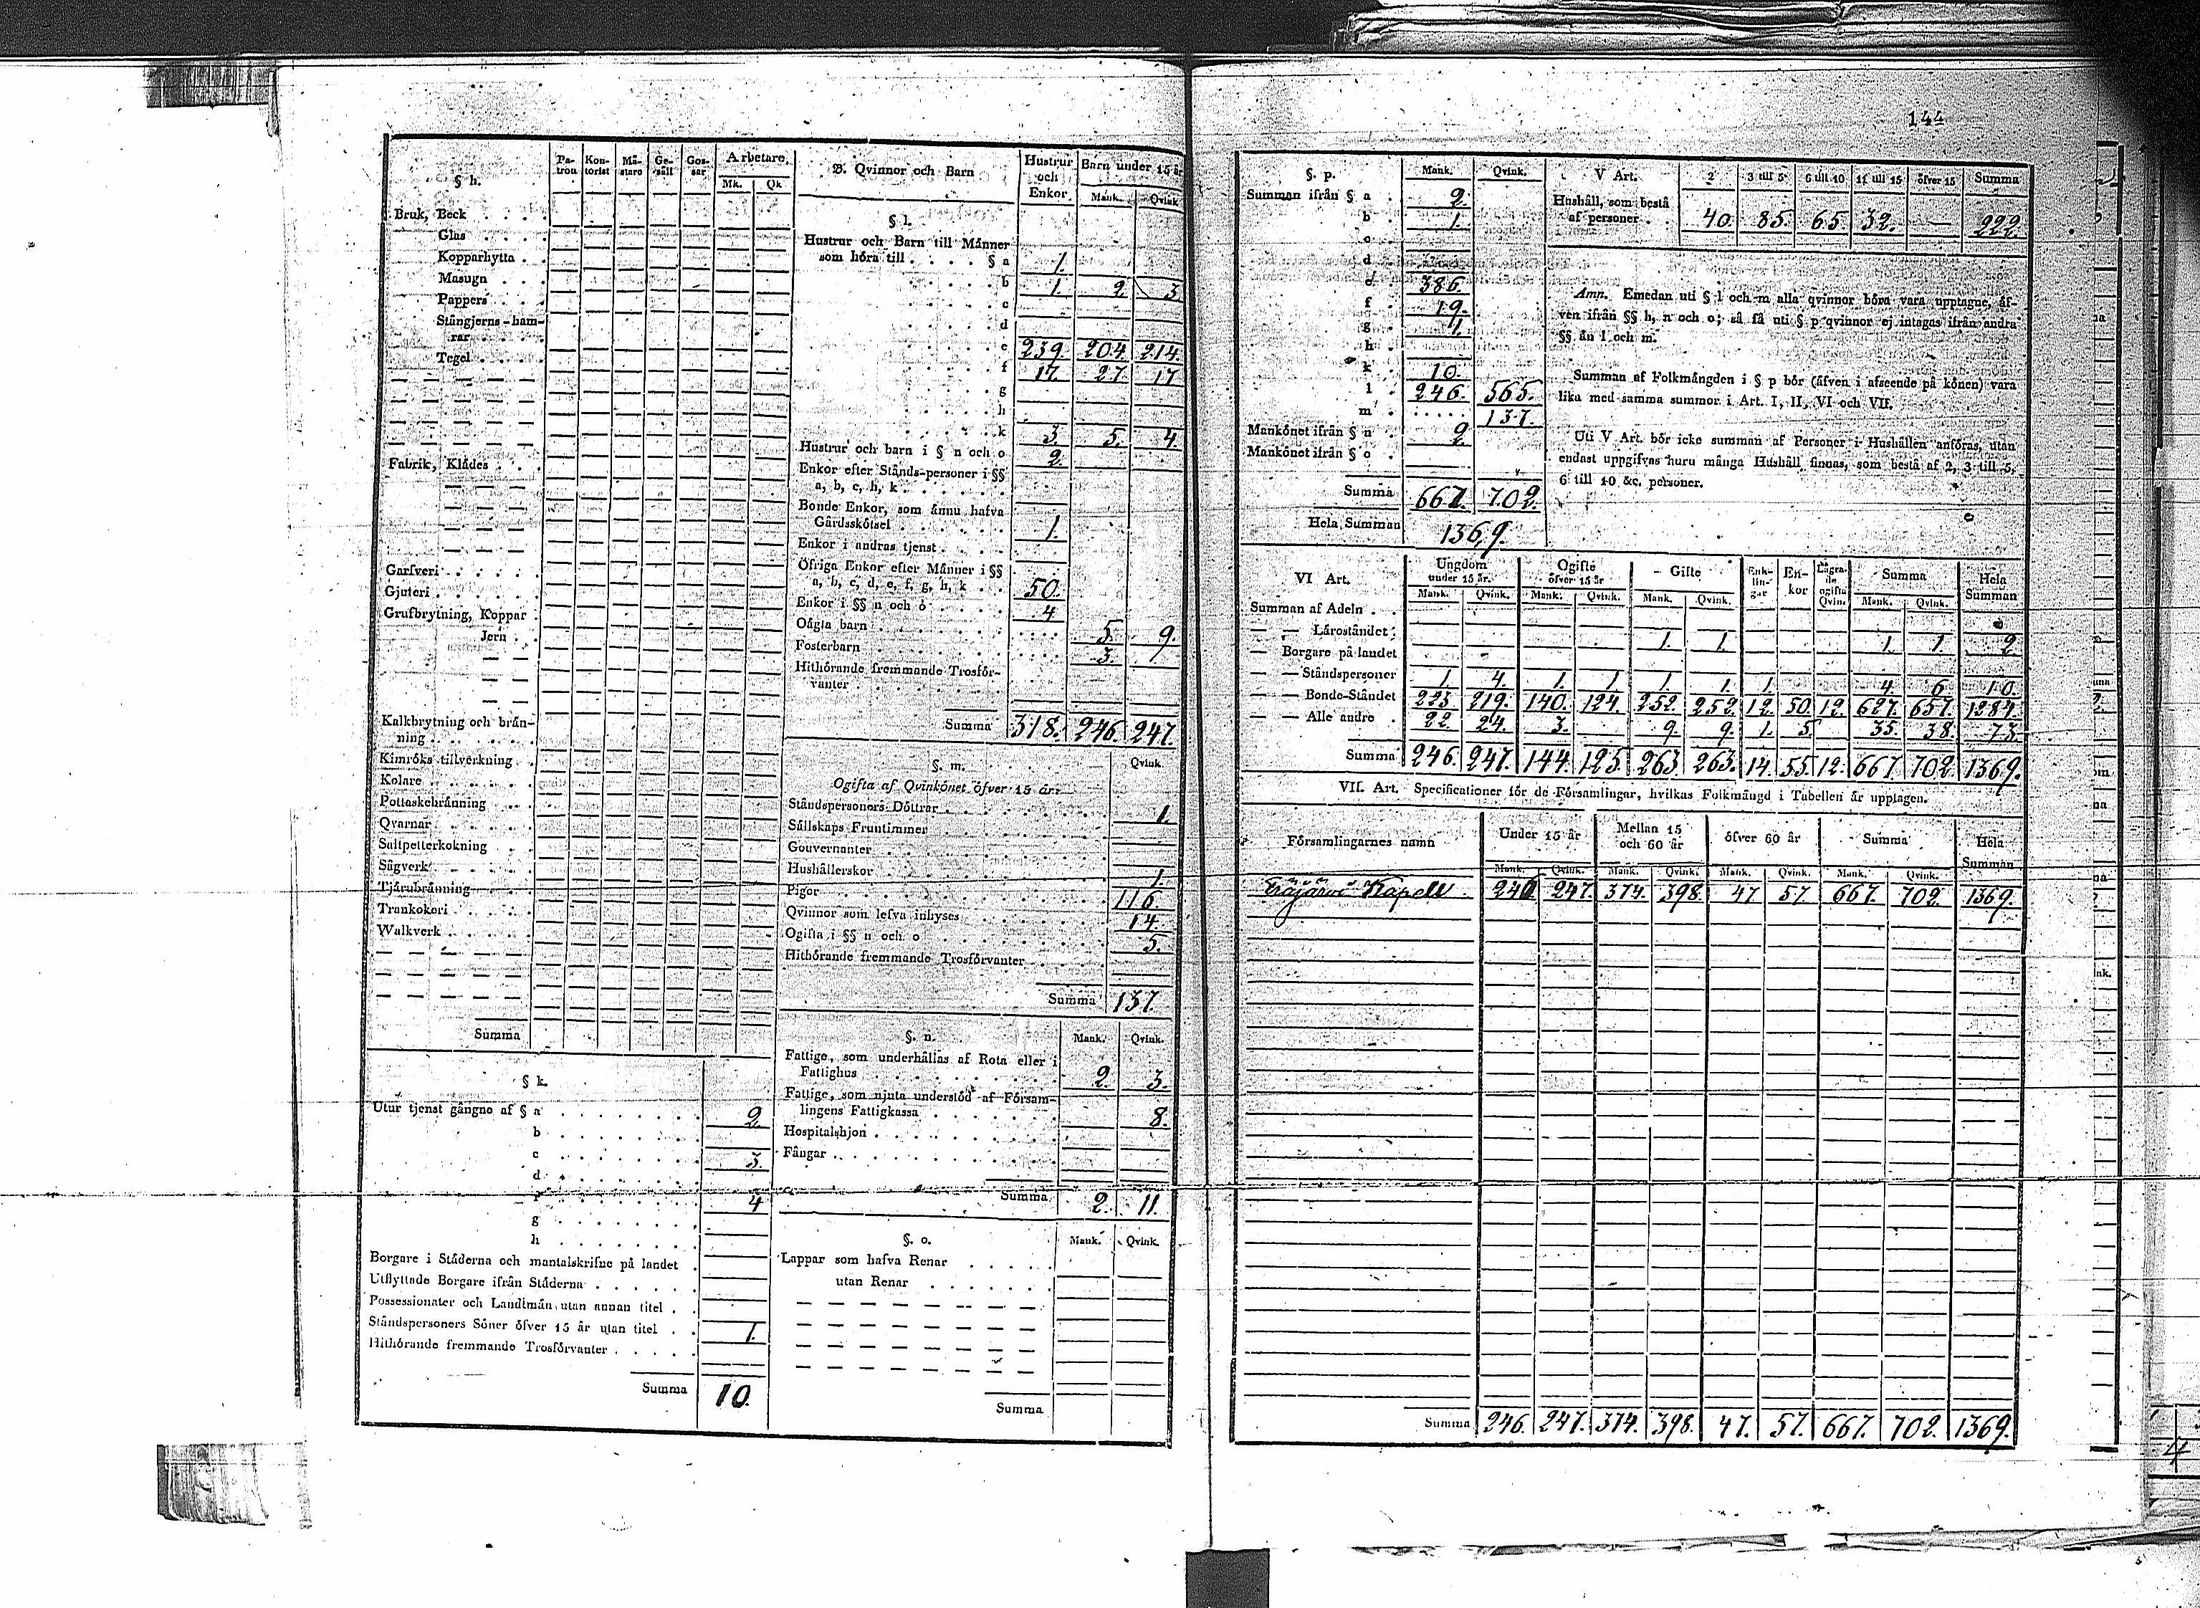 144
§ h.
Pa-tron Kon-torist Mä-stare Ge-säll Gos-sar Arbetare.
Mk. Qk
Bruk, Beck
Glas
Kopparhytta
Masugn
Pappers
Stångjerns-ham-
rar
Tegel
Fabrik, Klädes
Garfveri
Gjuteri
Grufbrytning, Koppar
Jern
Kalkbrytning och brän-
ning
Kimröks tillverkning
Kolare
Pottaskebränning
Qvarnar
Saltpetterkokning
Sågverk
Tjärubränning
Trankokeri
Walkverk
Summa
§ k.
Utur tjenst gångne af § a 2.
b
c 3.
d
f 4
g
h
Borgare i Städerna och mantalskrifne på landet
Utflyttade Borgare ifrån Städerna
Possessionater och Landtmän utan annan titel
Ståndspersoners Söner öfver 15 år utan titel 1.
Hithörande fremmande Trosförvanter
Summa 10.
B. Qvinnor och Barn Hustrur och Enkor Barn under 15 år
Mank. Qvink
§ l.
Hustrur och Barn till Männer
som höra till § a 1.
b 1. 2. 3.
c
d
e 239. 204. 214.
f 17. 27. 17
g
h
k 3. 5. 4
Hustrur och barn i § n och o 2.
Enkor efter Stånds-personer i §§
a, b, c, h, k
Bonde Enkor, som ännu hafva
Gårdsskötsel 1.
Enkor i andras tjenst
Öfriga Enkor efter Männer i §§
a, b, c, d, e, f, g, h, k 50.
Enkor i §§ n och o 4
Oägta barn 5. 9.
Fosterbarn 3.
Hithörande fremmande Trosför-
vanter
Summa 318. 246. 247.
§. m. Qvink
Ogifta af Qvinkönet öfver 15 år.
Ståndspersoners Döttrar 1.
Sällskaps Fruntimmer
Gouvernanter
Hushållerskor 1.
Pigor 116.
Qvinnor som lefva inhyses 14.
Ogifta i §§ n och o 5.
Hithörande fremmande Trosförvanter
Summa 137.
§. n. Mank. Qvink.
Fattige, som underhållas af Rota eller i
Fattighus 2. 3.
Fattige, som njuta understöd af Försam-
lingens Fattigkassa 8.
Hospitalshjon
Fångar
Summa 2. 11.
§. o. Mank. Qvink.
Lappar som hafva Renar
utan Renar
Summa
§. p. Mank. Qvink.
Summan ifrån § a 2.
b 1.
c
d
e 386.
f 19.
g 1.
h
k 10.
l 246. 565.
m 137.
Mankönet ifrån § n 2.
Mankönet ifrån § o
Summa 667. 702.
Hela Summan 1369.
V Art. 2 3 till 5 6 till 10 11 till 15 öfver 15 Summa
Hushåll, som bestå
af personer 40. 85. 65. 32. — 222.
Anm. Emedan uti § l och m alla qvinnor böra vara upptagne, äf-
ven ifrån §§ h, n och o; så få uti § p qvinnor ej intagas ifrån andra
§§ än l och m.
Summan af Folkmängden i § p bör (äfven i afseende på könen) vara
lika med samma summor i Art. I, II, VI och VII.
Uti V Art. bör icke summan af Personer i Hushållen anföras, utan
endast uppgifvas huru många Hushåll finnas, som bestå af 2, 3 till 5,
6 till 10 &c. personer.
VI Art. Ungdom under 15 år. Ogifte öfver 15 år Gifte Enk-lin-gar En-kor Lägra-de ogifta Qvin. Summa Hela Summan
Mank. Qvink. Mank. Qvink. Mank. Qvink. Mank. Qvink.
Summan af Adeln
— — Läroståndet 1. 1. 1. 1. 2
— Borgare på landet
— — Ståndspersoner 1. 4. 1. 1. 1. 1. 1. 4. 6 10
— — Bonde-Ståndet 223 219. 140. 124. 252. 252. 12. 50. 12. 627. 657. 1284.
— — Alle andre 22 24. 3. 9. 9. 1. 5. 35. 38. 73.
Summa 246. 247. 144. 125. 263. 263. 14. 55. 12. 667 702. 1369.
VII. Art. Specificationer för de Församlingar, hvilkas Folkmängd i Tabellen är upptagen.
Församlingarnes namn Under 15 år Mellan 15 och 60 år öfver 60 år Summa Hela Summan
Mank. Qvink. Mank. Qvink. Mank. Qvink. Mank. Qvink.
Eräjärvi Kapell 246 247. 374. 398 47 57. 667. 702. 1369.
Summa 246. 247. 374. 398. 47. 57. 667. 702. 1369.